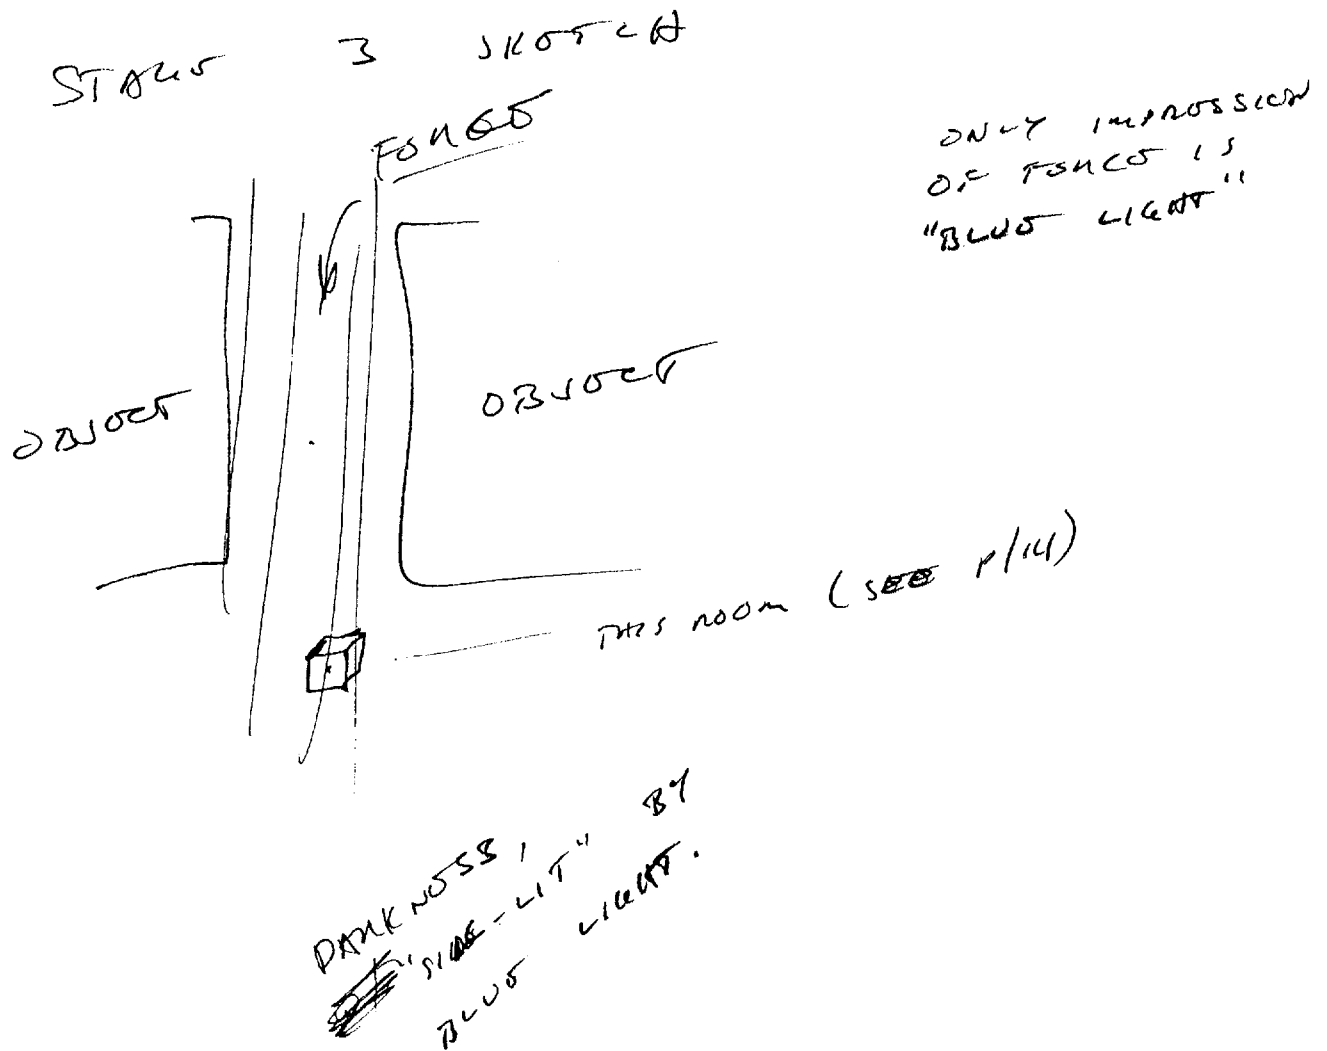 STAGE 3 SKETCH
FORCE
ONLY IMPRESSION
OF FORCE IS
"BLUE LIGHT"
OBJECT
OBJECT
THIS ROOM (SEE P/14)
DARKNESS,
"SIDE-LIT" BY
BLUE LIGHT.